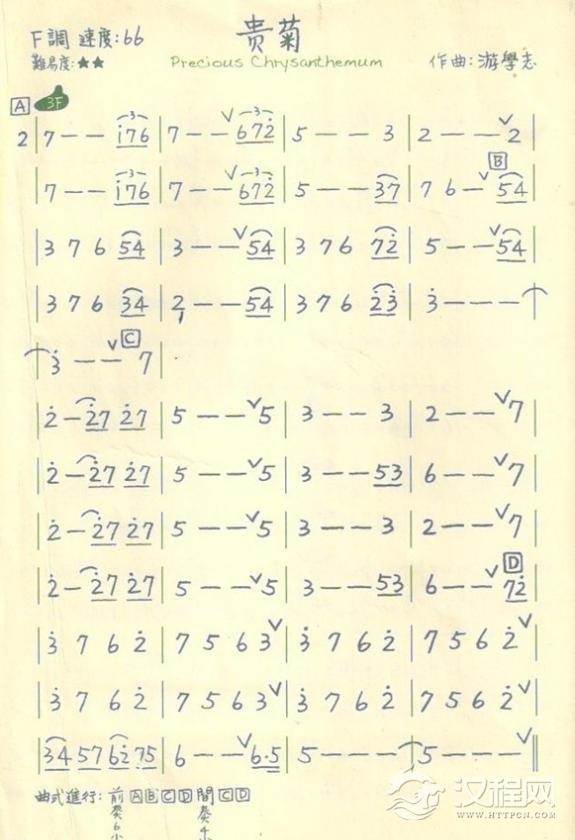 F調 速度:66 贵菊
難易度:★★ Precious Chrysanthemum 作曲:游學志
A 3F
2|7 — — i̇76|7 — — ∨672̇|5 — — 3|2 — — ∨2|
|7 — — i̇76|7 — — ∨672̇|5 — — 37|7 6 — ∨B 54|
|3 7 6 54|3 — — ∨54|3 7 6 72̇|5 — — ∨54|
|3 7 6 34|2 — — 54|3 7 6 2̇3̇|3̇ — — —|
|3̇ — — ∨C 7|
|2̇ — 2̇7 2̇7|5 — — ∨5|3 — — 3|2 — — ∨7|
|2̇ — 2̇7 2̇7|5 — — ∨5|3 — — 53|6 — — ∨7|
|2̇ — 2̇7 2̇7|5 — — ∨5|3 — — 3|2 — — ∨7|
|2̇ — 2̇7 2̇7|5 — — ∨5|3 — — 53|6 — — ∨D 72̇|
|3̇ 7 6 2̇|7 5 6 3∨|3̇ 7 6 2̇|7 5 6 2̇∨|
|3̇ 7 6 2̇|7 5 6 3∨|3̇ 7 6 2̇|7 5 6 2̇∨|
|34 57 62̇ 75|6 — — ∨6·5|5 — — —|5 — — — ∨‖
曲式進行: 前奏6小 A B C D 間奏4小 C D
汉程网
WWW.HTTPCN.COM